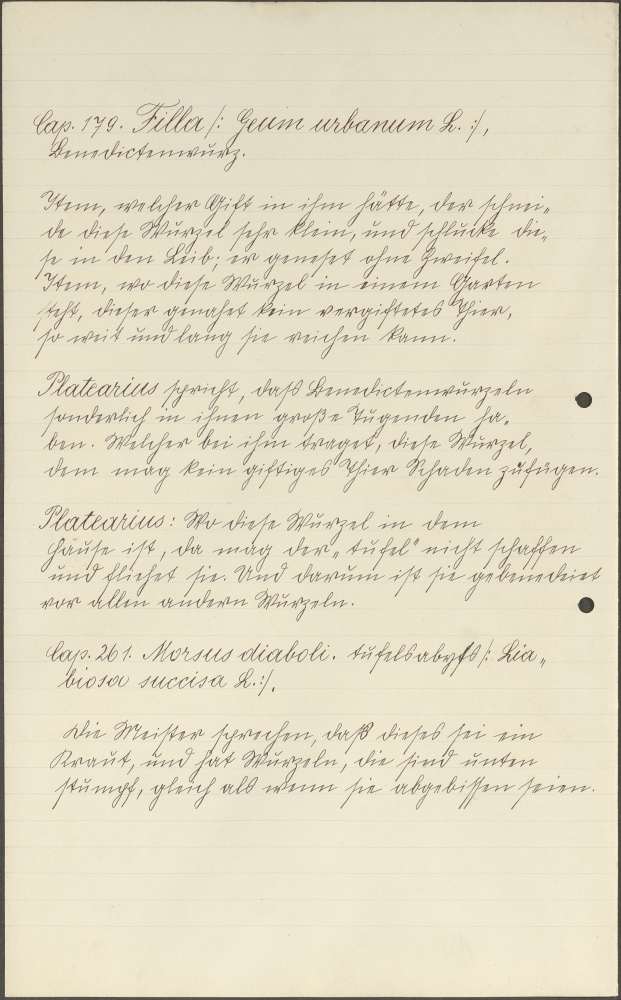 Cap. 179. Filla /: Geum urbanum L. :/,
Benedictenwurz.
Item, welcher Gift in ihm hätte, der schnei„
de diese Wurzel sehr klein, und schlucke die„
se in den Leib; er geneset ohne Zweifel.
Item, wo diese Wurzel in einem Garten
steht, dieser genahet kein vergiftetes Thier,
so weit und lang sie reichen kann.
Platearius spricht, daß Benedictenwurzeln
sonderlich in ihnen große Tugenden ha„
ben. Welcher bei ihm traget, diese Wurzel,
dem mag kein giftiges Thier Schaden zufügen.
Platearius: Wo diese Wurzel in dem
Hause ist, da mag der „tüfel“ nicht schaffen
und fliehet sie. Und darum ist sie gebenedeiet
vor allen andern Wurzeln.
Cap. 261. Morsus diaboli. tüfelsabyſs /: Sca„
biosa succisa L.:/.
Die Meister sprechen, daß dieses sei ein
Kraut, und hat Wurzeln, die sind unten
stumpf, gleich als wenn sie abgebissen seien.